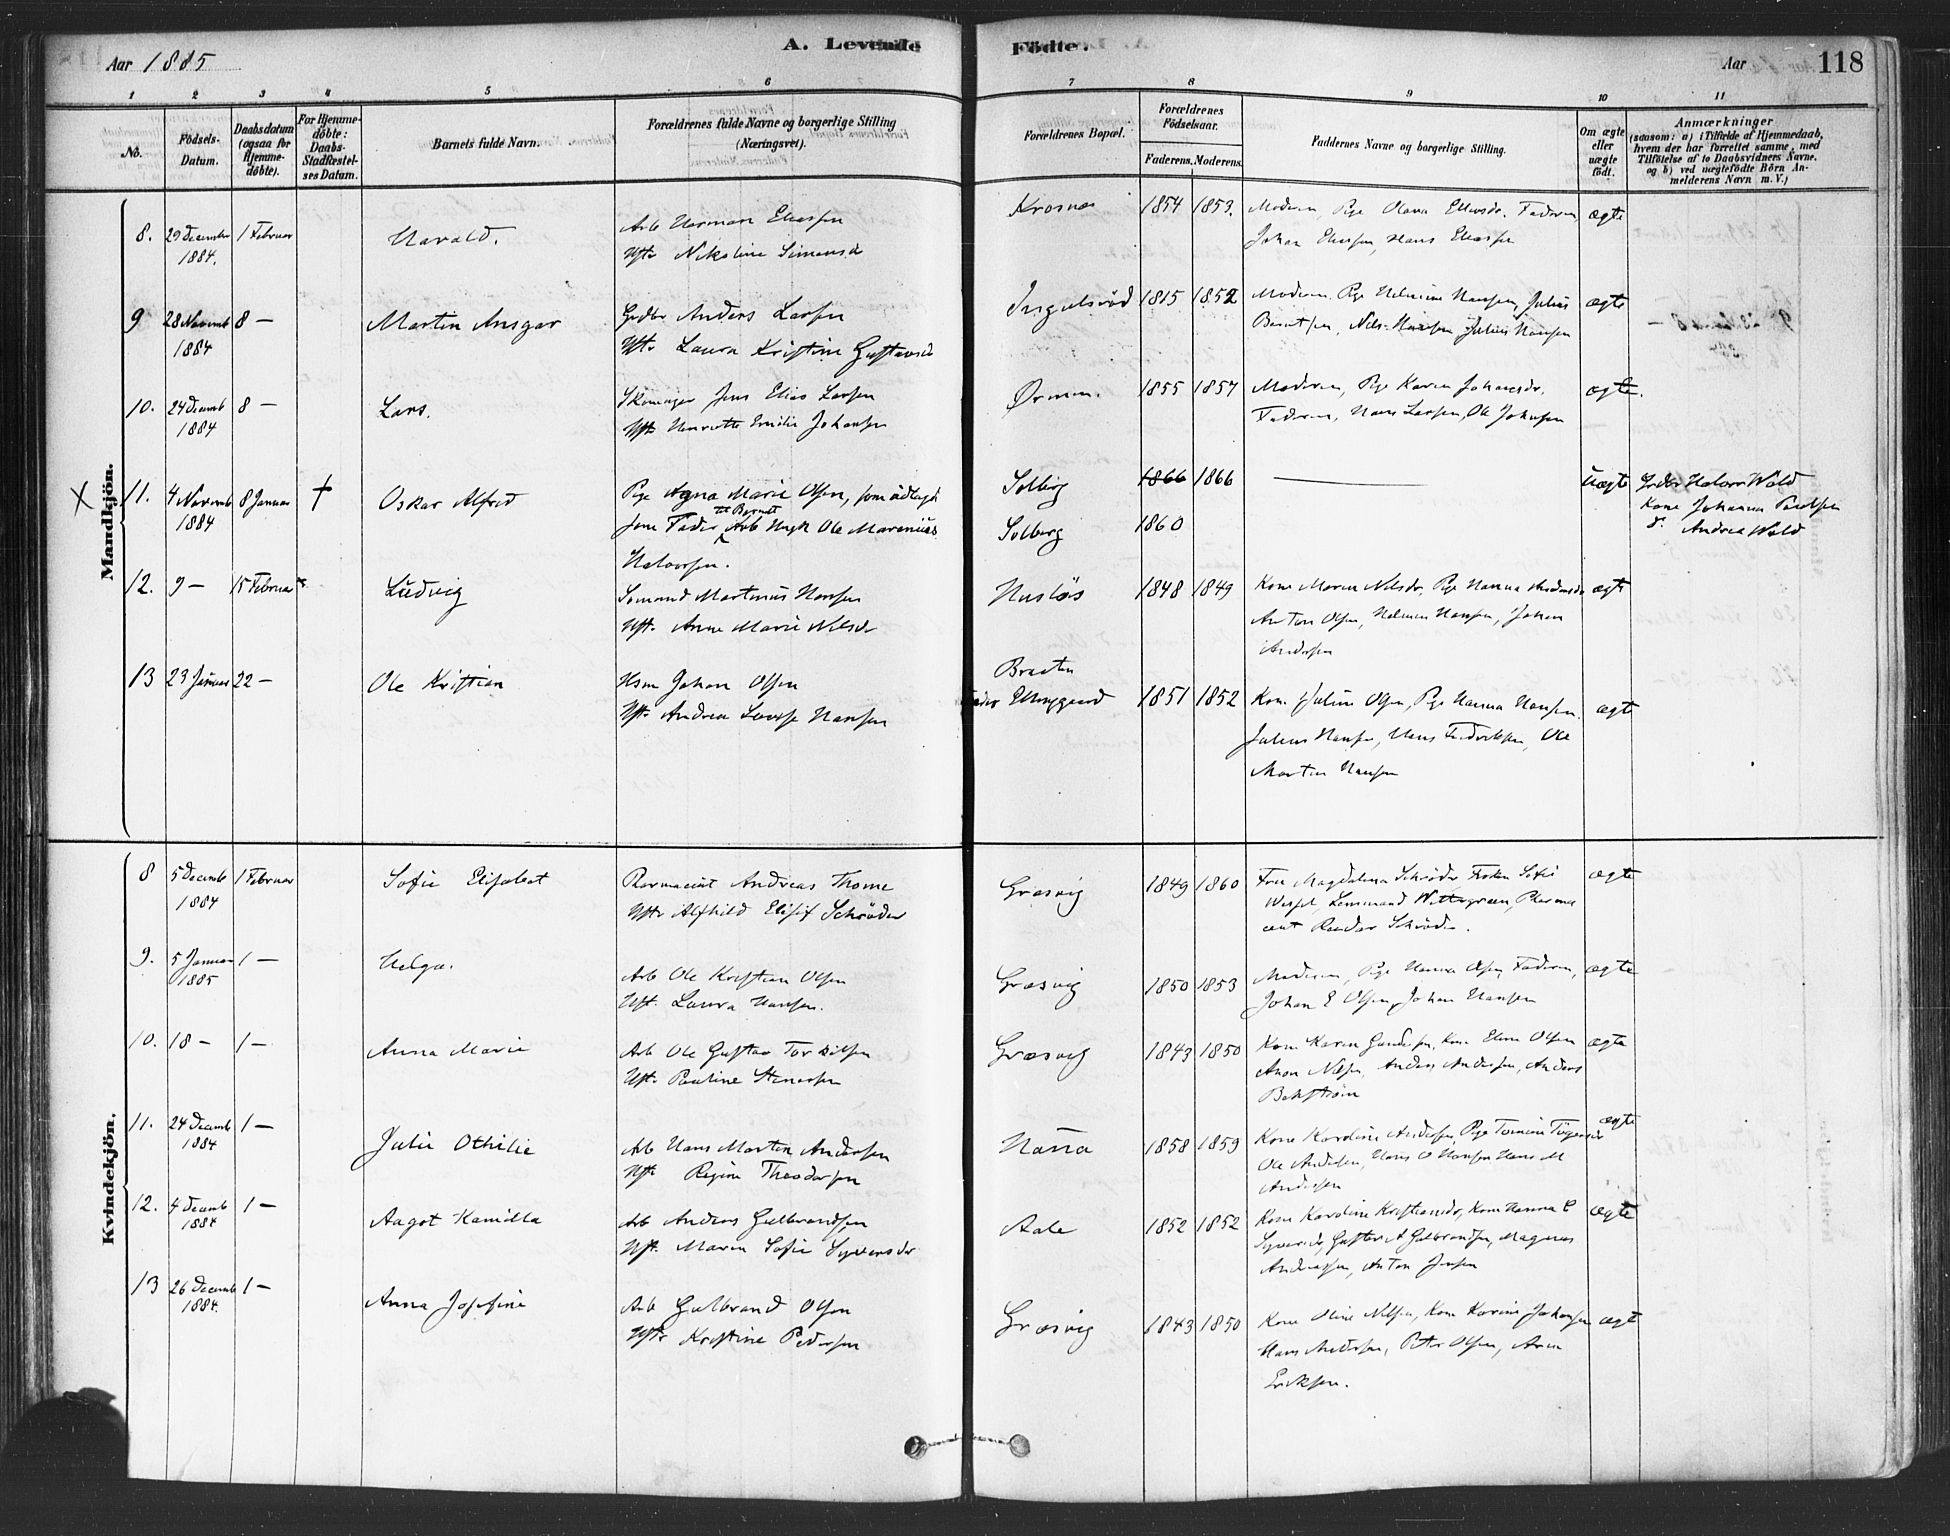 Aar 1885
A. Levende
Fødte.
Aar
118
1 2 3 4 5 6 7 8 9 10 11
No.
Födsels-Datum.
Daabsdatum (ogsaa for Hjemme-døbte).
For Hjemme-døbte: Daabs-Stadfæstel-ses Datum.
Barnets fulde Navn.
Forældrenes fulde Navne og borgerlige Stilling (Næringsvei).
Forældrenes Bopæl.
Forældrenes Födselsaar.
Faderens. Moderens.
Faddernes Navne og borgerlige Stilling.
Om ægte eller uægte födt.
Anmærkninger
(saasom: a) i Tilfælde af Hjemmedaab,
hvem der har forrettet samme, med
Tilföielse af to Daabsvidners Navne.
og b) ved uægtefödte Börn An-
melderens Navn m. V.)
Mandkjön.
8. 29 December 1884. 1 Februar Harald.
Arb Herman Eliassen
Hst: Nikoline Simensd
Krosnæs 1854 1853. Moderen, Pige Olava Eliasdr. Faderen ægte
Johan Eliassen, Hans Eliassen
9 28 Novemb 1884 8 — Martin Ansgar
Grdbr Anders Larsen
Hst: Laura Kristine Gustavsd
Ingulsröd 1815 1852 Moderen, Pige Helmine Hansen, Julius ægte
Berntsen, Nils Hansen Julius Hansen
10. 24 Decemb 1884 8 — Lars.
Skomager Jens Elias Larsen
Hst: Henriette Emilie Johansen
Ørmen. 1855 1857 Moderen, Pige Karen Johansdr. ægte.
Faderen, Hans Larsen, Ole Johansen
X 11. 4 Novemb 1884 8 Januar † Oskar Alfred
Pige Agna Marie Olsen, som udlagt
til Barnet
som Fader Arb Ungk Ole Marenius
Halvorsen.
Solberg 1866 1866 — Uægte
Solberg 1860
Halvor Wold
Kone Johanna Paulsen
d. Andrea Wold
12. 9 — 15 Februar Ludvig
Sömand Martinus Hansen
Hst. Anne Marie Nilsdr
Huslös 1848 1849 Kone Maren Nilsdr, Pige Hanna ægte
Anton Olsen, Helmer Hansen, Johan
Andersen
13 23 Januar 22 — Ole Kristian
Hsm Johan Olsen
Hst. Andrea Lovise Hansen
Braaten
under Elingaard 1851 1852 Kone Juline Olsen, Pige Hanna Hansen. ægt
Julius Hansen, Hans Fredriksen, Ole
Martin Hansen
Kvindekjön.
8 5 Decemb 1884 1 Februar Sofie Elisabet
Pharmaceut Andreas Thome
Hst: Alfhild Elisif Schröder
Græsvig 1849 1860 Frue Magdalena Schröder Fröken Sofie ægte
Wessel, Lensmand Wittegreen, Pharma
ceut Reidar Schröder.
9. 5 Januar 1885 1 — Helga.
Arb Ole Kristian Olsen
Hst. Laura Hansen.
Græsvig 1850 1853 Moderen, Pige Hanna Olsen Faderen, ægte
Johan E Olsen, Johan Hansen
10. 18 — 1 — Anna Marie
Arb Ole Gustav Torkilsen
Hst. Pauline Stenersen
Græsvig 1843 1850 Kone Karen Gundersen, Kone Elene Olsen ægte
Aron Nilsen, Anders Andersen, Anders
Bekström
11. 24 Decemb 1884 1 — Julie Othilie
Arb Hans Martin Andersen
Hst. Regine Theodorsen
1858 1859 Kone Karoline Andersen, Pige ægte
Ole Andersen, Hans O Hansen Hans M
Andersen
12. 4 Decemb 1884 1 — Aagot Kamilla
Arb Anders Gulbrandsen
Hst. Maren Sofie Syversdr
Aale 1852 1852 Kone Karoline Kristiansdr, Kone Hanna C ægte
Gustav A Gulbrandsen, Magnus
Andreassen, Anton Jensen
13 26 Decemb 1884. 1 — Anna Josefine
Arb Gulbrand Olsen
Hst. Kristine Pedersen
Græsvig 1843 1850 Kone Oline Nilsen, Kone Karine Johansen ægt
Hans Andersen, Petter Olsen, Aron
Eriksen.